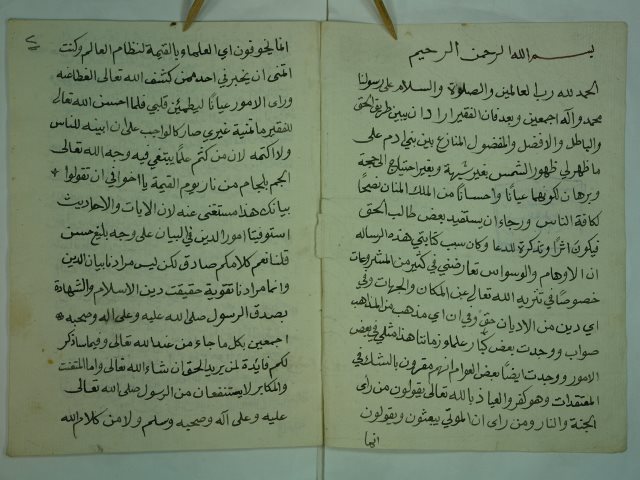 بسم الله الرحمن الرحيم
الحمد لله رب العالمين والصلوة والسلام على رسولنا
محمد وآله اجمعين وبعد فان الفقير اراد ان يبين طريق الحق
والباطل والافضل والمفضول المنازع بين بني ادم على
ما ظهر لي ظهور الشمس بغير شبهة وبغير احتياج الى حجة
وبرهان لكونهما عيانا واحسانا من الملك المنان نصحا
لكافة الناس ورجاء ان يستفيد بعض طالب الحق
فيكون اثرا وتذكرة للدعا وكان سبب كتابتي هذه الرساله
ان الاوهام والوسواس تعارضني في كثير من المشروعات
خصوصا في تنزيه الله تعالى عن المكان والجهات وفي
اي دين من الاديان حق وفي ان اي مذهب من المذاهب
صواب ووجدت بعض كبار علماء زماننا هذا مثلي في بعض
الامور ووجدت ايضا بعض العوام انهم مقرون بالشك في
المعتقدات وهو كفر والعياذ بالله تعالى يقولون من راى
الجنة والنار ومن راى ان الموتى يبعثون ويقولون
انما
انما يخوفون اي العلماء بالقيمة لنظام العالم وكنت
اتمنى ان يخبرني احد ممن كشف الله تعالى الغطا عنه
وراى الامور عيانا ليطمئن قلبي فلما احسن الله تعالى
للفقير ما تمنيته غيري صار كالواجب على ان ابينه للناس
ولا اكتمه لان من كتم علما يبتغي فيه وجه الله تعالى
الجم بلجام من نار يوم القيمة يا اخواني ان تقولوا
بيانك هذا مستغنى عنه لان الايات والاحاديث
استوفيتا امور الدين في البيان على وجه بليغ حسن
قلنا نعم كلامكم صادق لكن ليس مرادنا بيان الدين
وانما مرادنا تقوية حقيقت دين الاسلام والشهادة
بصدق الرسول صلى الله عليه وعلى اله وصحبه
اجمعين بكل ما جاء من عند الله تعالى وفيما سنذكر
لكم فائدة لمن يريد الحق ان شاء الله تعالى واما المتعنت
والمكابر لا ينتفعان من الرسول صلى الله تعالى
عليه وعلى اله وصحبه وسلم ولا من كلام الله